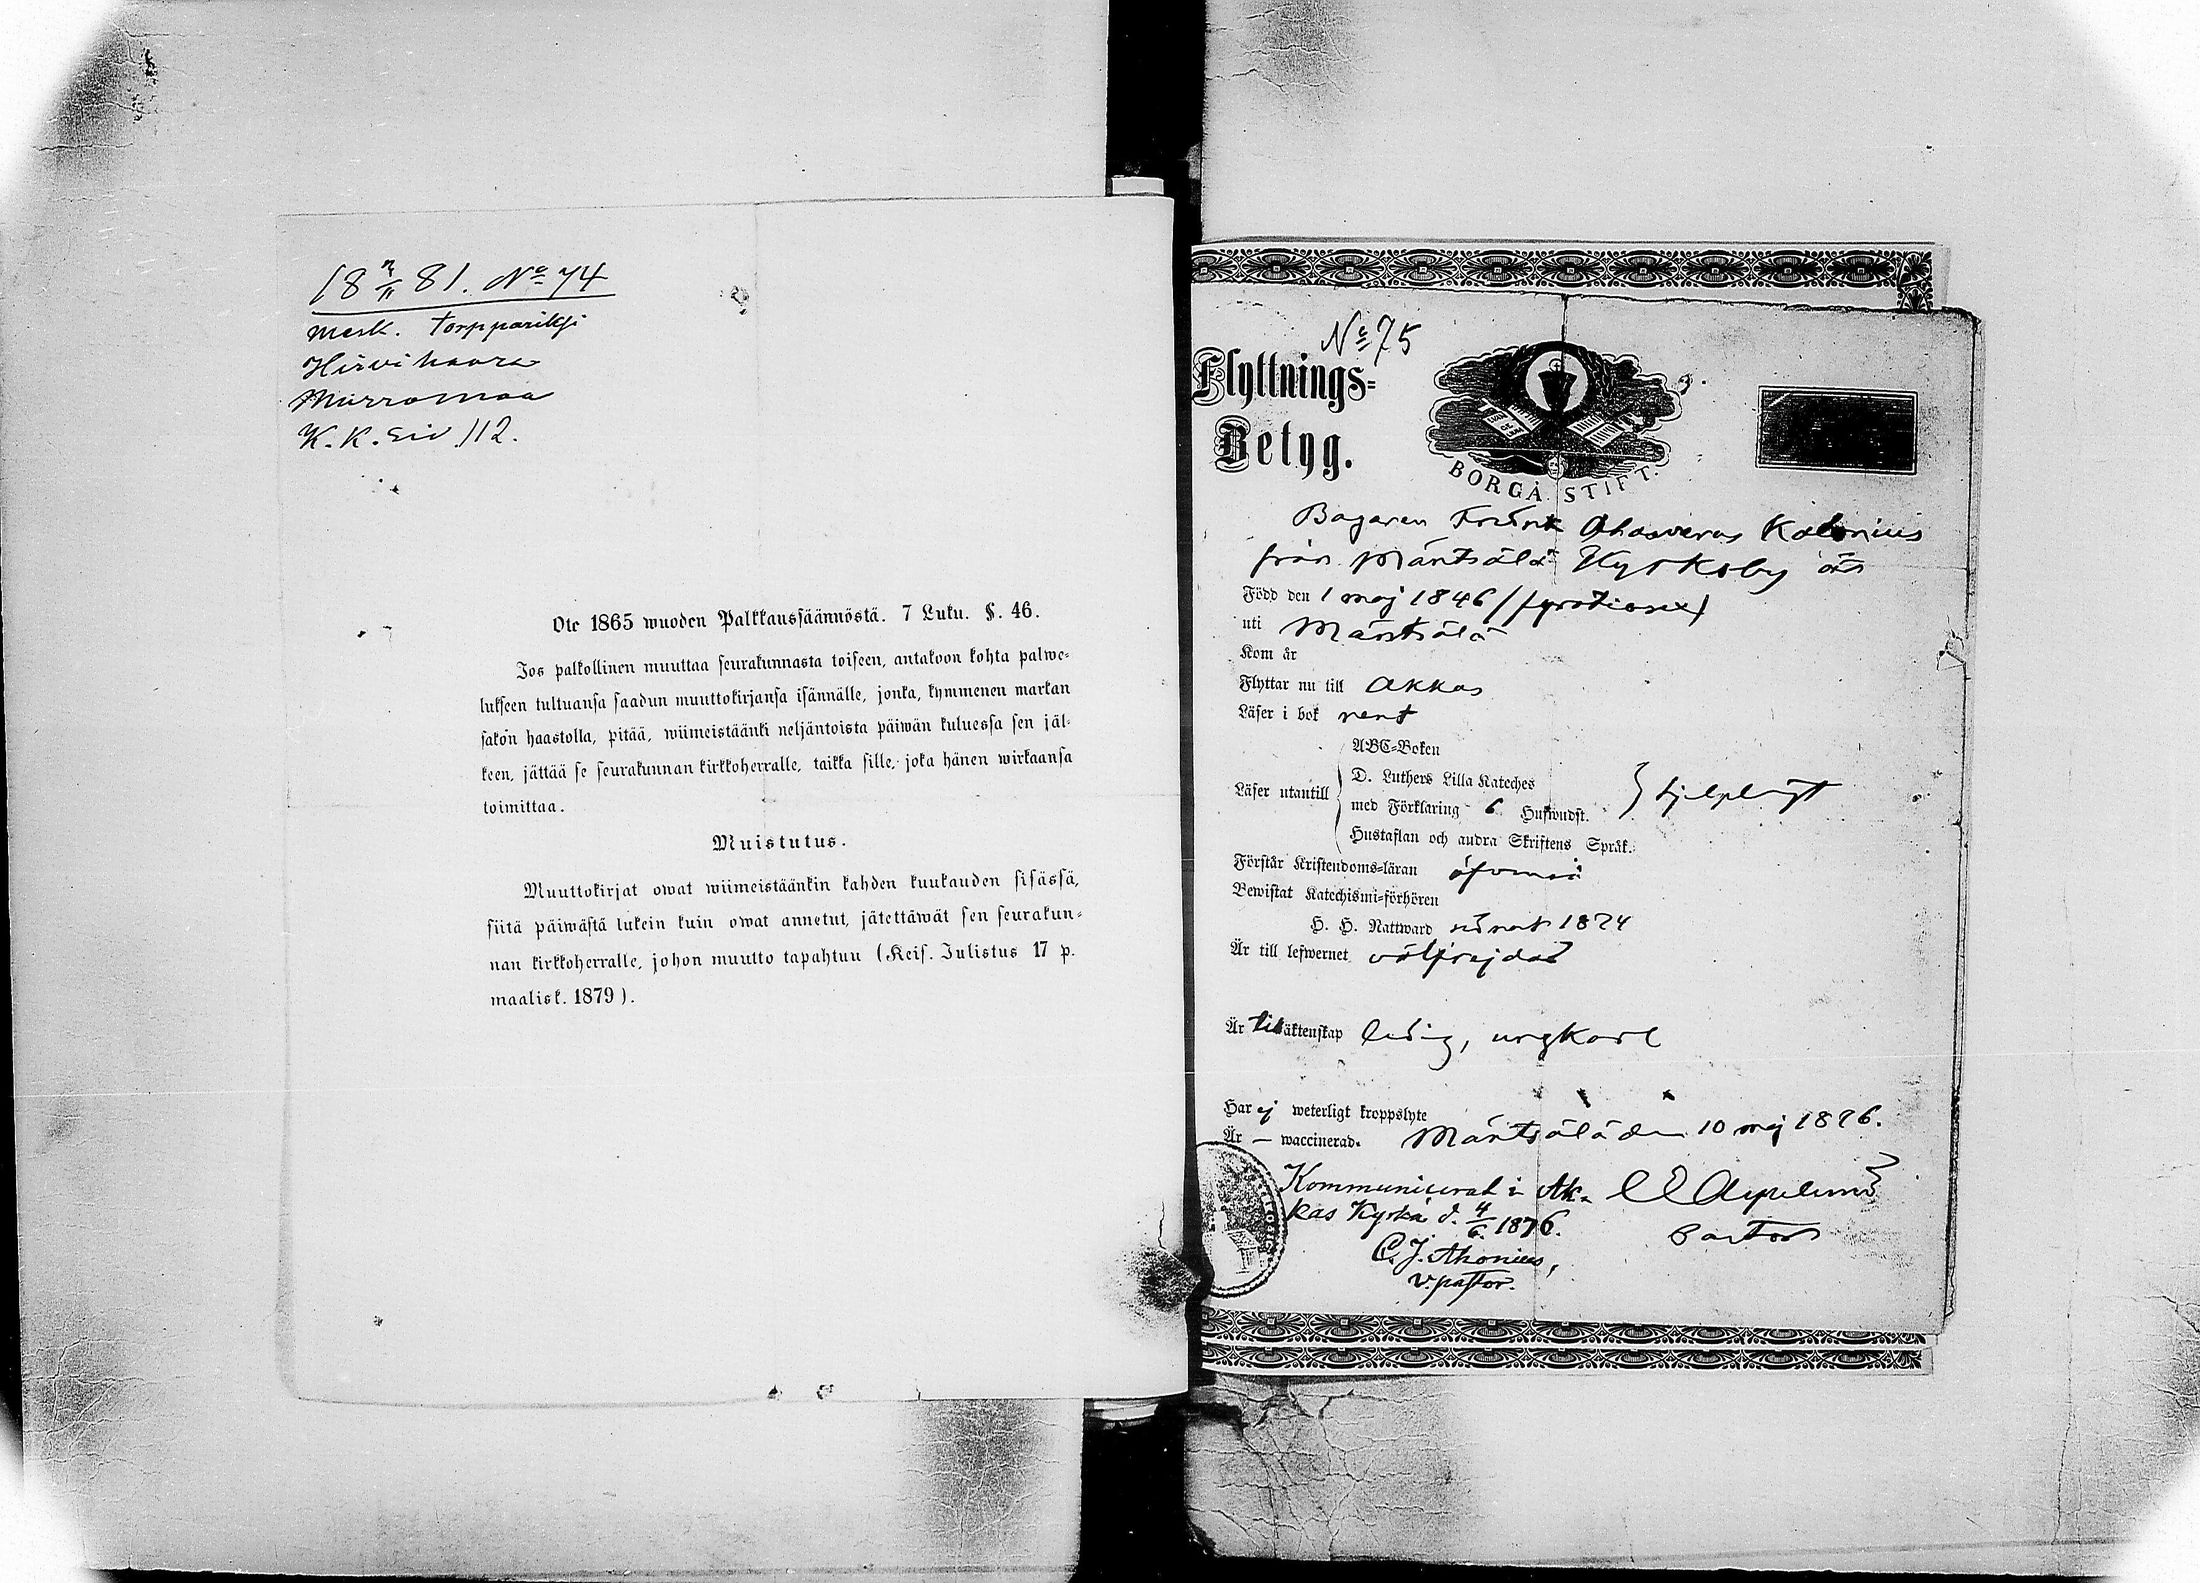 18 2/11 81. No 74
merk. torppariksi
Hirvihaara
Murromaa
K. K. siv 112.
Ote 1865 wuoden Palkkaussäännöstä. 7 Luku. §. 46.
Jos palkollinen muuttaa seurakunnasta toiseen, antakoon kohta palwe-
lukseen tultuansa saadun muuttokirjansa isännälle, jonka, kymmenen markan
sakon haastolla, pitää, wiimeistäänki neljäntoista päiwän kuluessa sen jäl-
keen, jättää se seurakunnan kirkkoherralle, taikka sille, joka hänen wirkaansa
toimittaa.
Muistutus.
Muuttokirjat owat wiimeistäänkin kahden kuukauden sisässä,
siitä päiwästä lukein kuin owat annetut, jätettäwät sen seurakun-
nan kirkkoherralle, johon muutto tapahtuu (Keis. Julistus 17 p.
maalisk. 1879).
No 75
Flyttnings-
Betyg.
BORGÅ STIFT.
Bagaren Fredrik Ahasverus Kalenius
från Mäntsälä Kyrkoby är
Född den 1 maj 1846
uti Mäntsälä
Kom år
Flyttar nu till Akkas
Läser i bok rent
ABC-Boken
D. Luthers Lilla Kateches
Läser utantill med Förklaring 6 Hufwudst. hjelpligt
Hustaflan och andra Skriftens Språk.
Förstår Kristendoms-läran
Bewistat Katechismi-förhören
H. H. Nattward 1874
Är till lefwernet välfrejdad
Är till äktenskap ledig, ungkarl
Har ej weterligt kroppslyte
Är — waccinerad. Mäntsälä den 10 maj 1876.
Kommunicerat i Ak-
kas Kyrka d. 4/6 1876.
Pastor
C. J. Ahonius,
v. pastor.